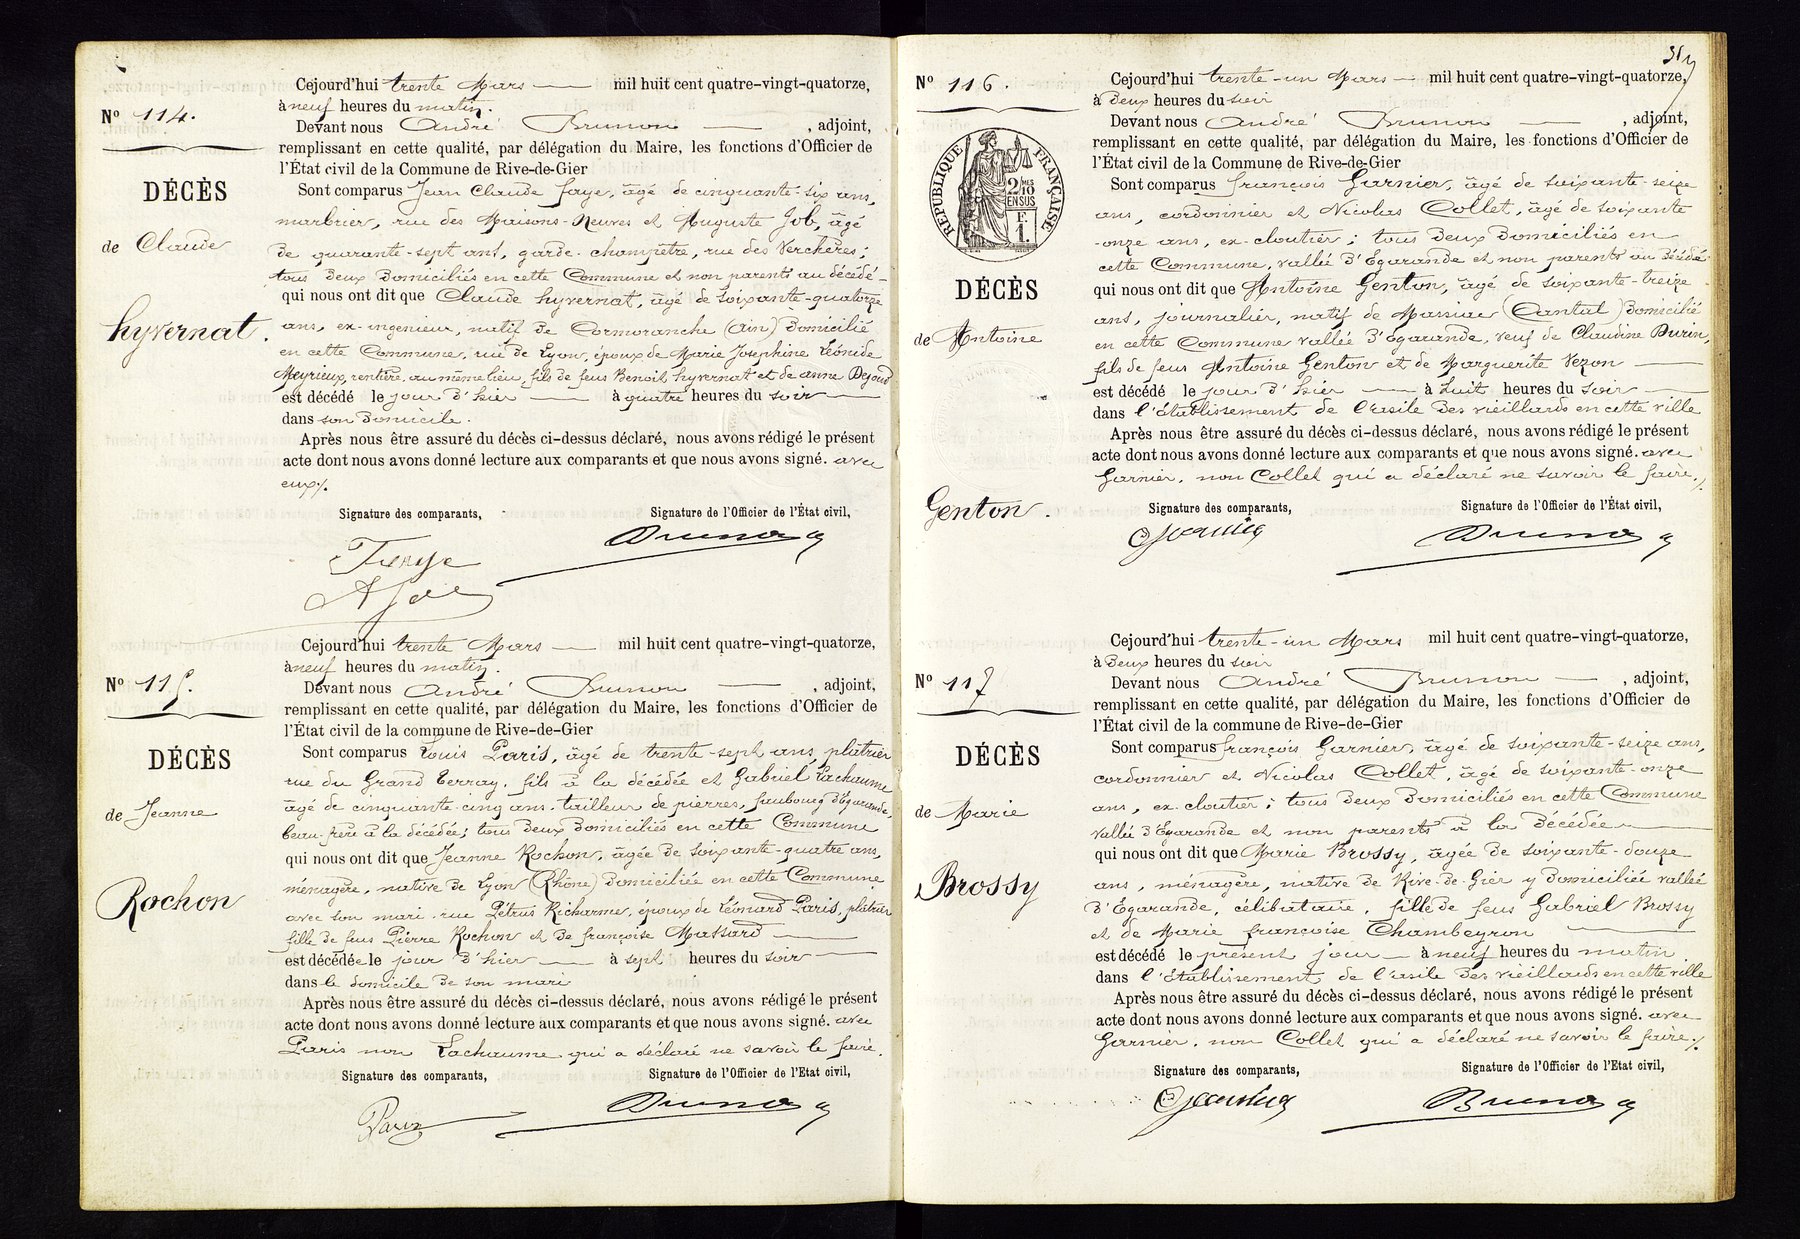 Cejourd'hui trente Mars mil huit cent quatre-vingt-quatorze,
à neuf heures du matin.
Nº 114.
Devant nous André Brunon, adjoint,
remplissant en cette qualité, par délégation du Maire, les fonctions d'Officier de
l'État civil de la Commune de Rive-de-Gier
DÉCÈS
Sont comparus Jean Claude Faye, âgé de cinquante-six ans,
marbrier, rue des Maisons-Neuves et Auguste Job, âgé
de Claude
de quarante-sept ans, garde-champêtre, rue des Verchères;
tous deux domiciliés en cette Commune et non parents au décédé
qui nous ont dit que Claude Hyvernat, âgé de soixante-quatorze
Hyvernat.
ans, ex-ingenieur, natif de Cormoranche (Ain) domicilié
en cette Commune, rue de Lyon, époux de Marie Josephine Léonide
Meyrieux, rentière, au même lieu, fils de feus Benoit Hyvernat et de anne Dejoud
est décédé le jour d'hier à quatre heures du soir
dans son domicile.
Après nous être assuré du décès ci-dessus déclaré, nous avons rédigé le présent
acte dont nous avons donné lecture aux comparants et que nous avons signé. avec
eux./.
Signature des comparants,
Signature de l'Officier de l'État civil,
Faye
Brunon
A Job
Cejourd'hui trente Mars mil huit cent quatre-vingt-quatorze,
à neuf heures du matin.
Nº 115.
Devant nous André Brunon, adjoint,
remplissant en cette qualité, par délégation du Maire, les fonctions d'Officier de
l'État civil de la commune de Rive-de-Gier
DÉCÈS
Sont comparus Louis Paris, âgé de trente-sept ans, plâtrier
rue du Grand Terray, fils à la décédée et Gabriel Lachaume
âgé de cinquante-cinq ans, tailleur de pierres, faubourg d'Egarande,
de Jeanne
beau-frère à la décédée; tous deux domiciliés en cette Commune
qui nous ont dit que Jeanne Rochon, âgée de soixante-quatre ans,
ménagère, native de Lyon (Rhône) domiciliée en cette Commune
Rochon
avec son mari, rue Pétrus Richarme, époux de Léonard Paris, plâtrier
fille de feus Pierre Rochon et de françoise Massard
est décédée le jour d'hier à sept heures du soir
dans le domicile de son mari
Après nous être assuré du décès ci-dessus déclaré, nous avons rédigé le présent
acte dont nous avons donné lecture aux comparants et que nous avons signé. avec
Paris non Lachaume qui a déclaré ne savoir le faire.
Signature des comparants,
Signature de l'Officier de l'Etat civil,
Paris
Brunon
Nº 116.
Cejourd'hui trente-un Mars mil huit cent quatre-vingt-quatorze,
à deux heures du soir
Devant nous André Brunon, adjoint,
remplissant en cette qualité, par délégation du Maire, les fonctions d'Officier de
l'État civil de la Commune de Rive-de-Gier
RÉPUBLIQUE FRANÇAISE
2/10
EN SUS
F.
1.
Sont comparus françois Garnier, âgé de soixante-seize
ans, cordonnier et Nicolas Collet, âgé de soixante
-onze ans, ex-cloutier; tous deux domiciliés en
cette Commune, vallée d'Egarande et non parents au décédé
DÉCÈS
qui nous ont dit que Antoine Genton, âgé de soixante-treize
ans, journalier, natif de Massiac (Cantal) domicilié
de Antoine
en cette Commune vallée d'Egarande, veuf de Claudine Durin,
fils de feus Antoine Genton et de Marguerite Vezon
est décédé le jour d'hier à huit heures du soir
dans l'établissement de l'asile des vieillards en cette ville
Après nous être assuré du décès ci-dessus déclaré, nous avons rédigé le présent
acte dont nous avons donné lecture aux comparants et que nous avons signé. avec
Garnier, non Collet qui a déclaré ne savoir le faire./.
Genton.
Signature des comparants,
Signature de l'Officier de l'État civil,
Garnier
Brunon
Cejourd'hui trente-un Mars mil huit cent quatre-vingt-quatorze,
à deux heures du soir
Nº 117
Devant nous André Brunon, adjoint,
remplissant en cette qualité, par délégation du Maire, les fonctions d'Officier de
l'État civil de la commune de Rive-de-Gier
DÉCÈS
Sont comparus françois Garnier, âgé de soixante-seize ans,
cordonnier et Nicolas Collet, âgé de soixante-onze
ans, ex-cloutier; tous deux domiciliés en cette Commune
de Marie
vallée d'Egarande et non parents à la décédée
qui nous ont dit que Marie Brossy, âgée de soixante-douze
Brossy
ans, ménagère, native de Rive-de-Gier y domiciliée vallée
d'Egarande, célibataire, fille de feus Gabriel Brossy
et de Marie françoise Chambeyron
est décédé le présent jour à neuf heures du matin
dans l'établissement de l'asile des vieillards en cette ville
Après nous être assuré du décès ci-dessus déclaré, nous avons rédigé le présent
acte dont nous avons donné lecture aux comparants et que nous avons signé. avec
Garnier, non Collet qui a déclaré ne savoir le faire./.
Signature des comparants,
Signature de l'Officier de l'Etat civil,
Garnier
Brunon